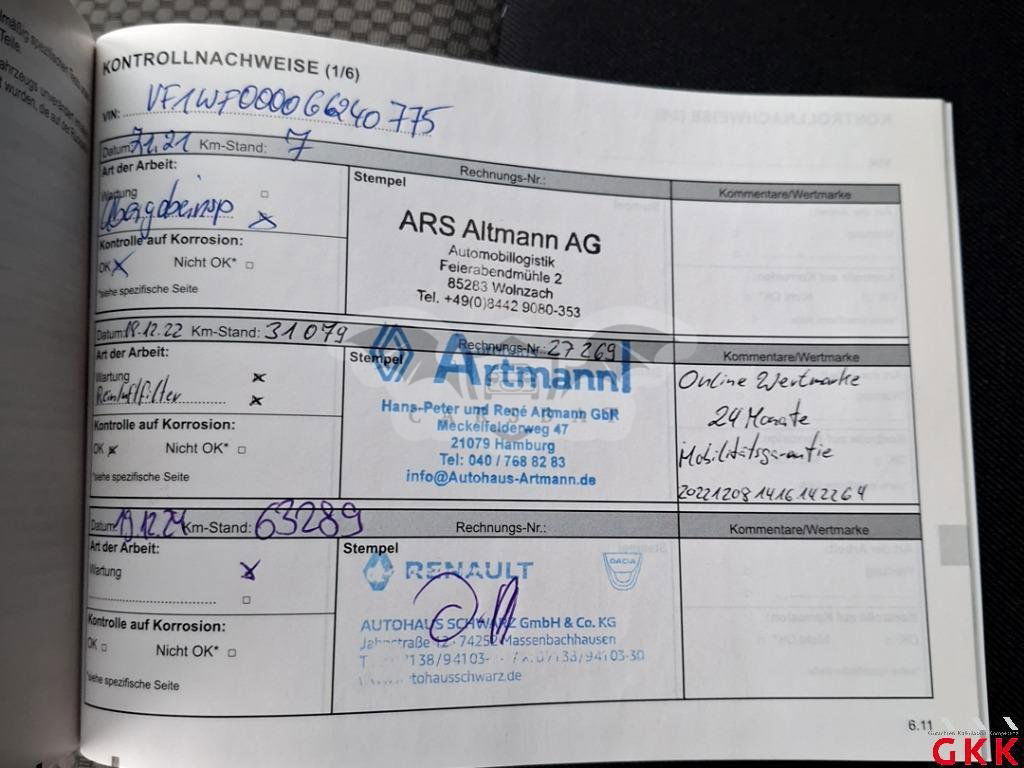 KONTROLLNACHWEISE (1/6)
VIN: VF1WF000066240775
Datum: 7.1.21 Km-Stand: 7
Rechnungs-Nr.:
Art der Arbeit:
Stempel
Kommentare/Wertmarke
Wartung
Übergabeinsp
Kontrolle auf Korrosion:
OK Nicht OK*
*siehe spezifische Seite
ARS Altmann AG
Automobillogistik
Feierabendmühle 2
85283 Wolnzach
Tel. +49(0)8442 9080-353
Datum: 18.12.22 Km-Stand: 31079
Rechnungs-Nr.: 27269
Art der Arbeit:
Stempel
Kommentare/Wertmarke
Wartung
Reinluftfilter
Kontrolle auf Korrosion:
OK Nicht OK*
*siehe spezifische Seite
Artmann
Hans-Peter und René Artmann GbR
Meckelfelderweg 47
21079 Hamburg
Tel: 040 / 768 82 83
info@Autohaus-Artmann.de
Online Wertmarke
24 Monate
Mobilitätsgarantie
202212081416142264
Datum: 19.12.24 Km-Stand: 63289
Rechnungs-Nr.:
Art der Arbeit:
Stempel
Kommentare/Wertmarke
Wartung
Kontrolle auf Korrosion:
OK Nicht OK*
*siehe spezifische Seite
RENAULT
DACIA
AUTOHAUS SCHWARZ GmbH & Co. KG
74252 Massenbachhausen
138/94103- 138/94103-30
tohausschwarz.de
6.11
GKK